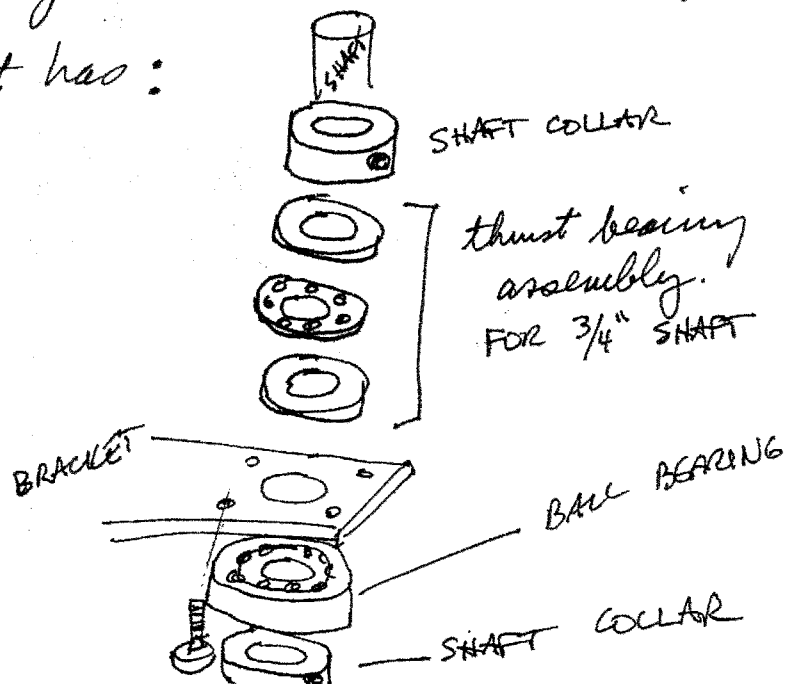 t has:
SHAFT
SHAFT COLLAR
thrust bearing
assembly.
FOR 3/4" SHAFT
BRACKET
BALL BEARING
SHAFT COLLAR